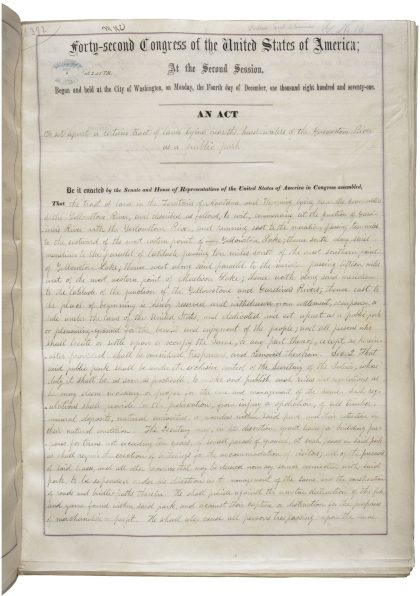 1392
Forty-second Congress of the United States of America;
At the Second Session,
Begun and held at the City of Washington, on Monday, the Fourth day of December, one thousand eight hundred and seventy-one.
AN ACT
to set apart a certain tract of land lying near the head-waters of the Yellowstone River
as a public park.
Be it enacted by the Senate and House of Representatives of the United States of America in Congress assembled,
That the tract of land in the Territories of Montana and Wyoming lying near the head-waters
of the Yellowstone River, and described as follows, to wit, commencing at the junction of Gard-
iner's River with the Yellowstone River, and running east to the meridian passing ten miles
to the eastward of the most eastern point of Yellowstone Lake; thence south along said
meridian to the parallel of latitude passing ten miles south of the most southern point
of Yellowstone Lake; thence west along said parallel to the meridian passing fifteen miles
west of the most western point of Madison Lake; thence north along said meridian
to the latitude of the junction of the Yellowstone and Gardiner's Rivers; thence east to
the place of beginning is hereby reserved and withdrawn from settlement, occupancy, or
sale under the laws of the United States, and dedicated and set apart as a public park
or pleasuring ground for the benefit and enjoyment of the people; and all persons who
shall locate or settle upon or occupy the same, or any part thereof, except as herein-
after provided, shall be considered trespassers and removed therefrom. Sec. 2 That
said public park shall be under the exclusive control of the Secretary of the Interior, whose
duty it shall be, as soon as practicable, to make and publish such rules and regulations as
he may deem necessary or proper for the care and management of the same. Such reg-
ulations shall provide for the preservation from injury or spoliation, of all timber,
mineral deposits, natural curiosities, or wonders within said park, and their retention in
their natural condition. The Secretary may, in his discretion, grant leases for building pur-
poses, for terms not exceeding ten years, of small parcels of ground, at such places in said park
as shall require the erection of buildings for the accommodation of visitors; all of the proceeds
of said leases, and all other revenues that may be derived from any source connected with said
park, to be expended under his direction in the management of the same, and the construction
of roads and bridle-paths therein. He shall provide against the wanton destruction of the fish
and game found within said park, and against their capture or destruction for the purposes
of merchandise or profit. He shall also cause all persons trespassing upon the same